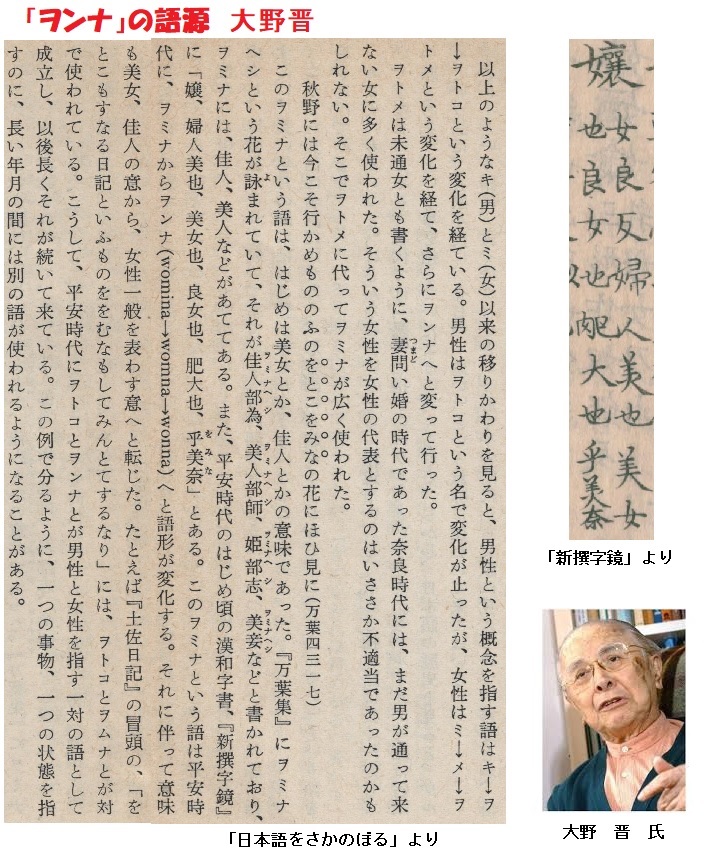 「ヲンナ」の語源 大野晋
以上のようなキ(男)とミ(女)以来の移りかわりを見ると、男性という概念を指す語はキ→ヲ
→ヲトコという変化を経ている。男性はヲトコという名で変化が止ったが、女性はミ→メ→ヲ
トメという変化を経て、さらにヲンナへと変って行った。
つまど
ヲトメは未通女とも書くように、妻問い婚の時代であった奈良時代には、まだ男が通って来
ない女に多く使われた。そういう女性を女性の代表とするのはいささか不適当であったのかも
しれない。そこでヲトメに代ってヲミナが広く使われた。
秋野には今こそ行かめもののふのをとこをみなの花にほひ見に(万葉四三一七)
このヲミナという語は、はじめは美女とか、佳人とかの意味であった。『万葉集』にヲミナ
よ ヲミナヘシ ヲミナヘシ ヲミナヘシ ヲミナヘシ
ヘシという花が詠まれていて、それが佳人部為、美人部師、姫部志、美妾などと書かれており、
ヲミナには、佳人、美人などがあててある。また、平安時代のはじめ頃の漢和字書、『新撰字鏡』
をみな
に「嬢、婦人美也、美女也、良女也、肥大也、乎美奈」とある。このヲミナという語は平安時
代に、ヲミナからヲンナ(womina→womna→wonna)へと語形が変化する。それに伴って意味
も美女、佳人の意から、女性一般を表わす意へと転じた。たとえば『土佐日記』の冒頭の、「を
とこもすなる日記といふものををむなもしてみんとてするなり」には、ヲトコとヲムナとが対
で使われている。こうして、平安時代にヲトコとヲンナとが男性と女性を指す一対の語として
成立し、以後長くそれが続いて来ている。この例で分るように、一つの事物、一つの状態を指
すのに、長い年月の間には別の語が使われるようになることがある。
「日本語をさかのぼる」より
嬢
女良反婦人美也美女
也良女也肥大也乎美奈
「新撰字鏡」より
大野 晋 氏